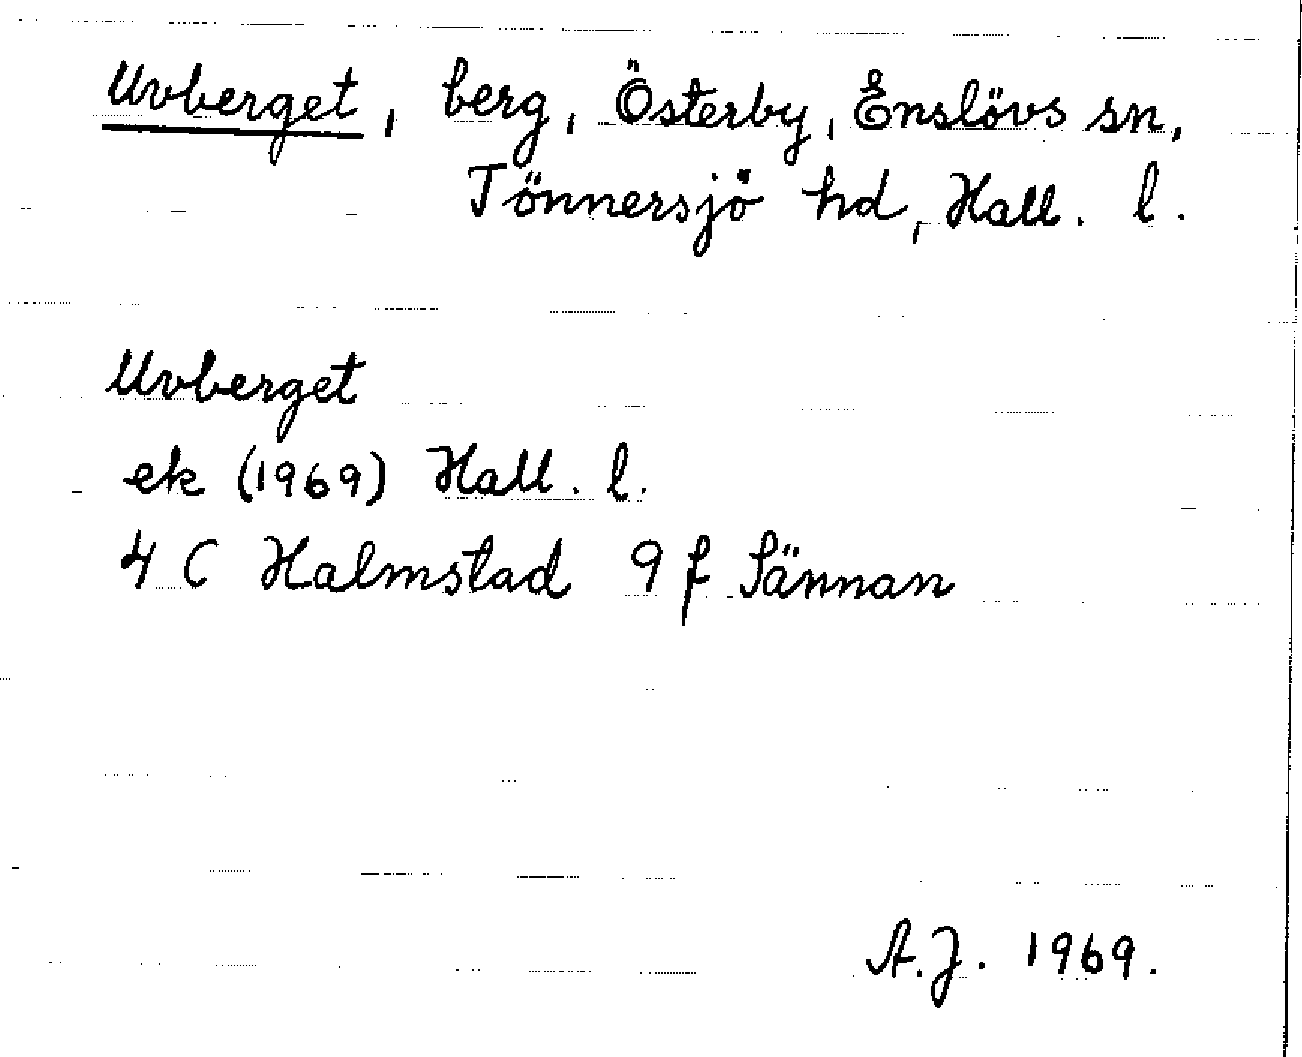 Uvberget, berg, Österby, Enslövs sn,
Tönnersjö hd, Hall. l.
Uvberget
ek (1969) Hall. l.
4 C Halmstad 9 f Sännan
A.J. 1969.